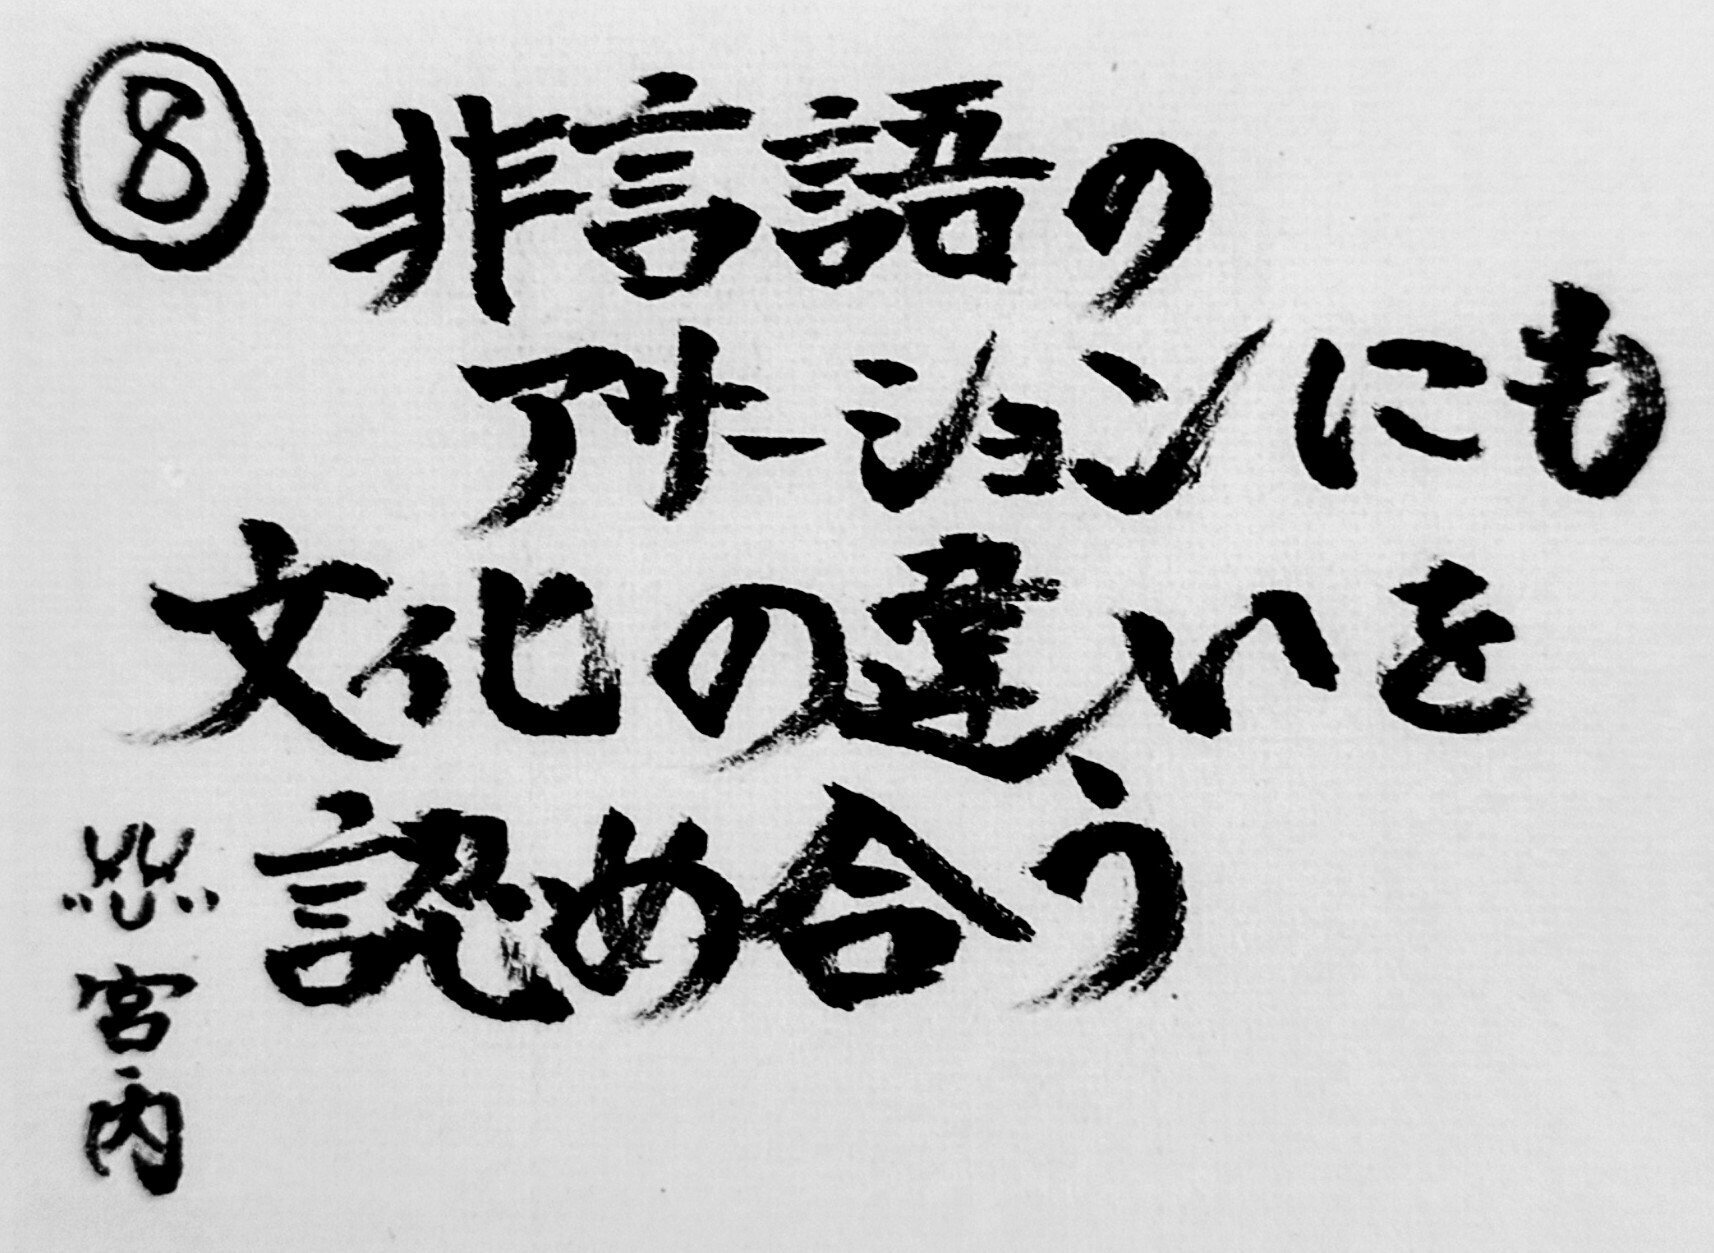 ⑧ 非言語の
アサーションにも
文化の違いを
認め合う
宮内